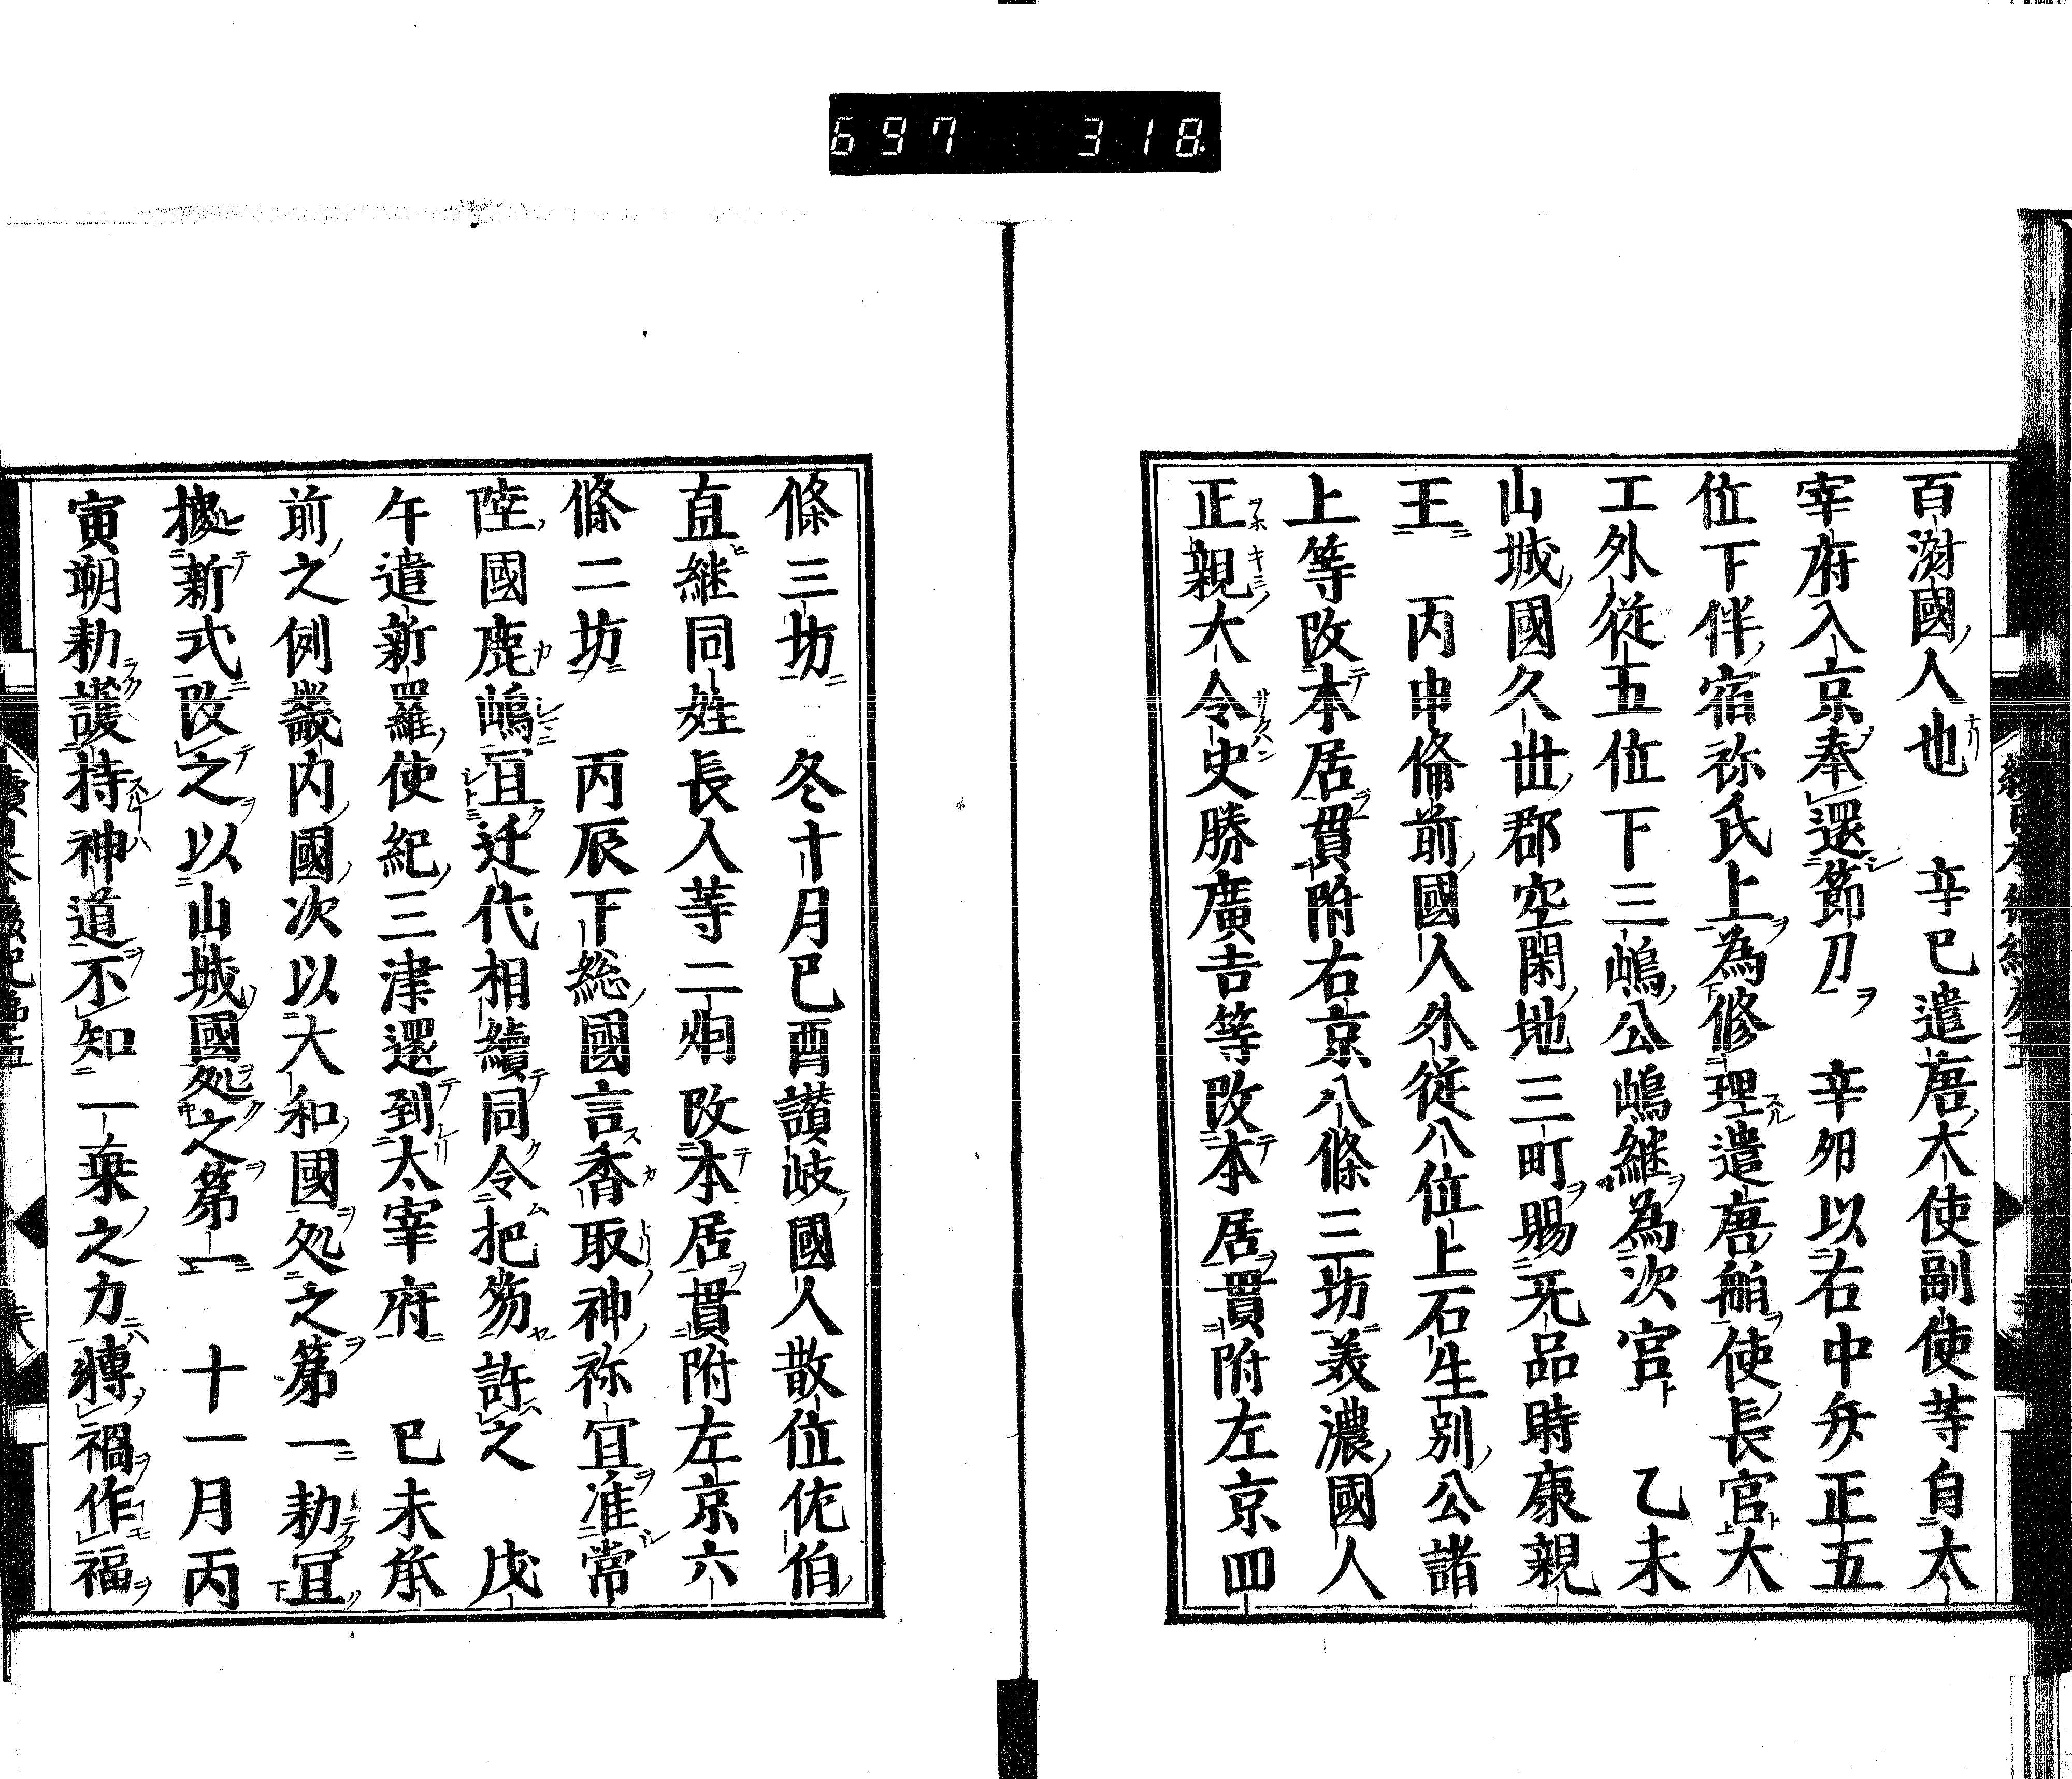 697 318
百済國人也 辛巳遣唐大使副使等自太
宰府入京奉還節刀 辛夘以右中弁正五
位下伴宿祢氏上為修理遣唐舶使長官大
工外従五位下三嶋公嶋継為次官 乙未
山城國久世郡空閑地三町賜无品時康親
王 丙申偹前國人外従八位上石生別公諸
上等改本居貫附右京八條三坊美濃國人
正親大令史勝廣吉等改本居貫附左京四
條三坊 冬十月己酉讃岐國人散位佐伯
直継同姓長人等二烟改本居貫附左京六
條二坊 丙辰下総國言香取神祢宜准常
陸國鹿嶋冝迁代相續同令把笏許之 戊
午遣新羅使紀三津還到太宰府 己未承
前之例畿内國次以大和國処之第一勅冝
據新式改之以山城國処之第一 十一月丙
寅朔勅護持神道不知一乗之力轉禍作福